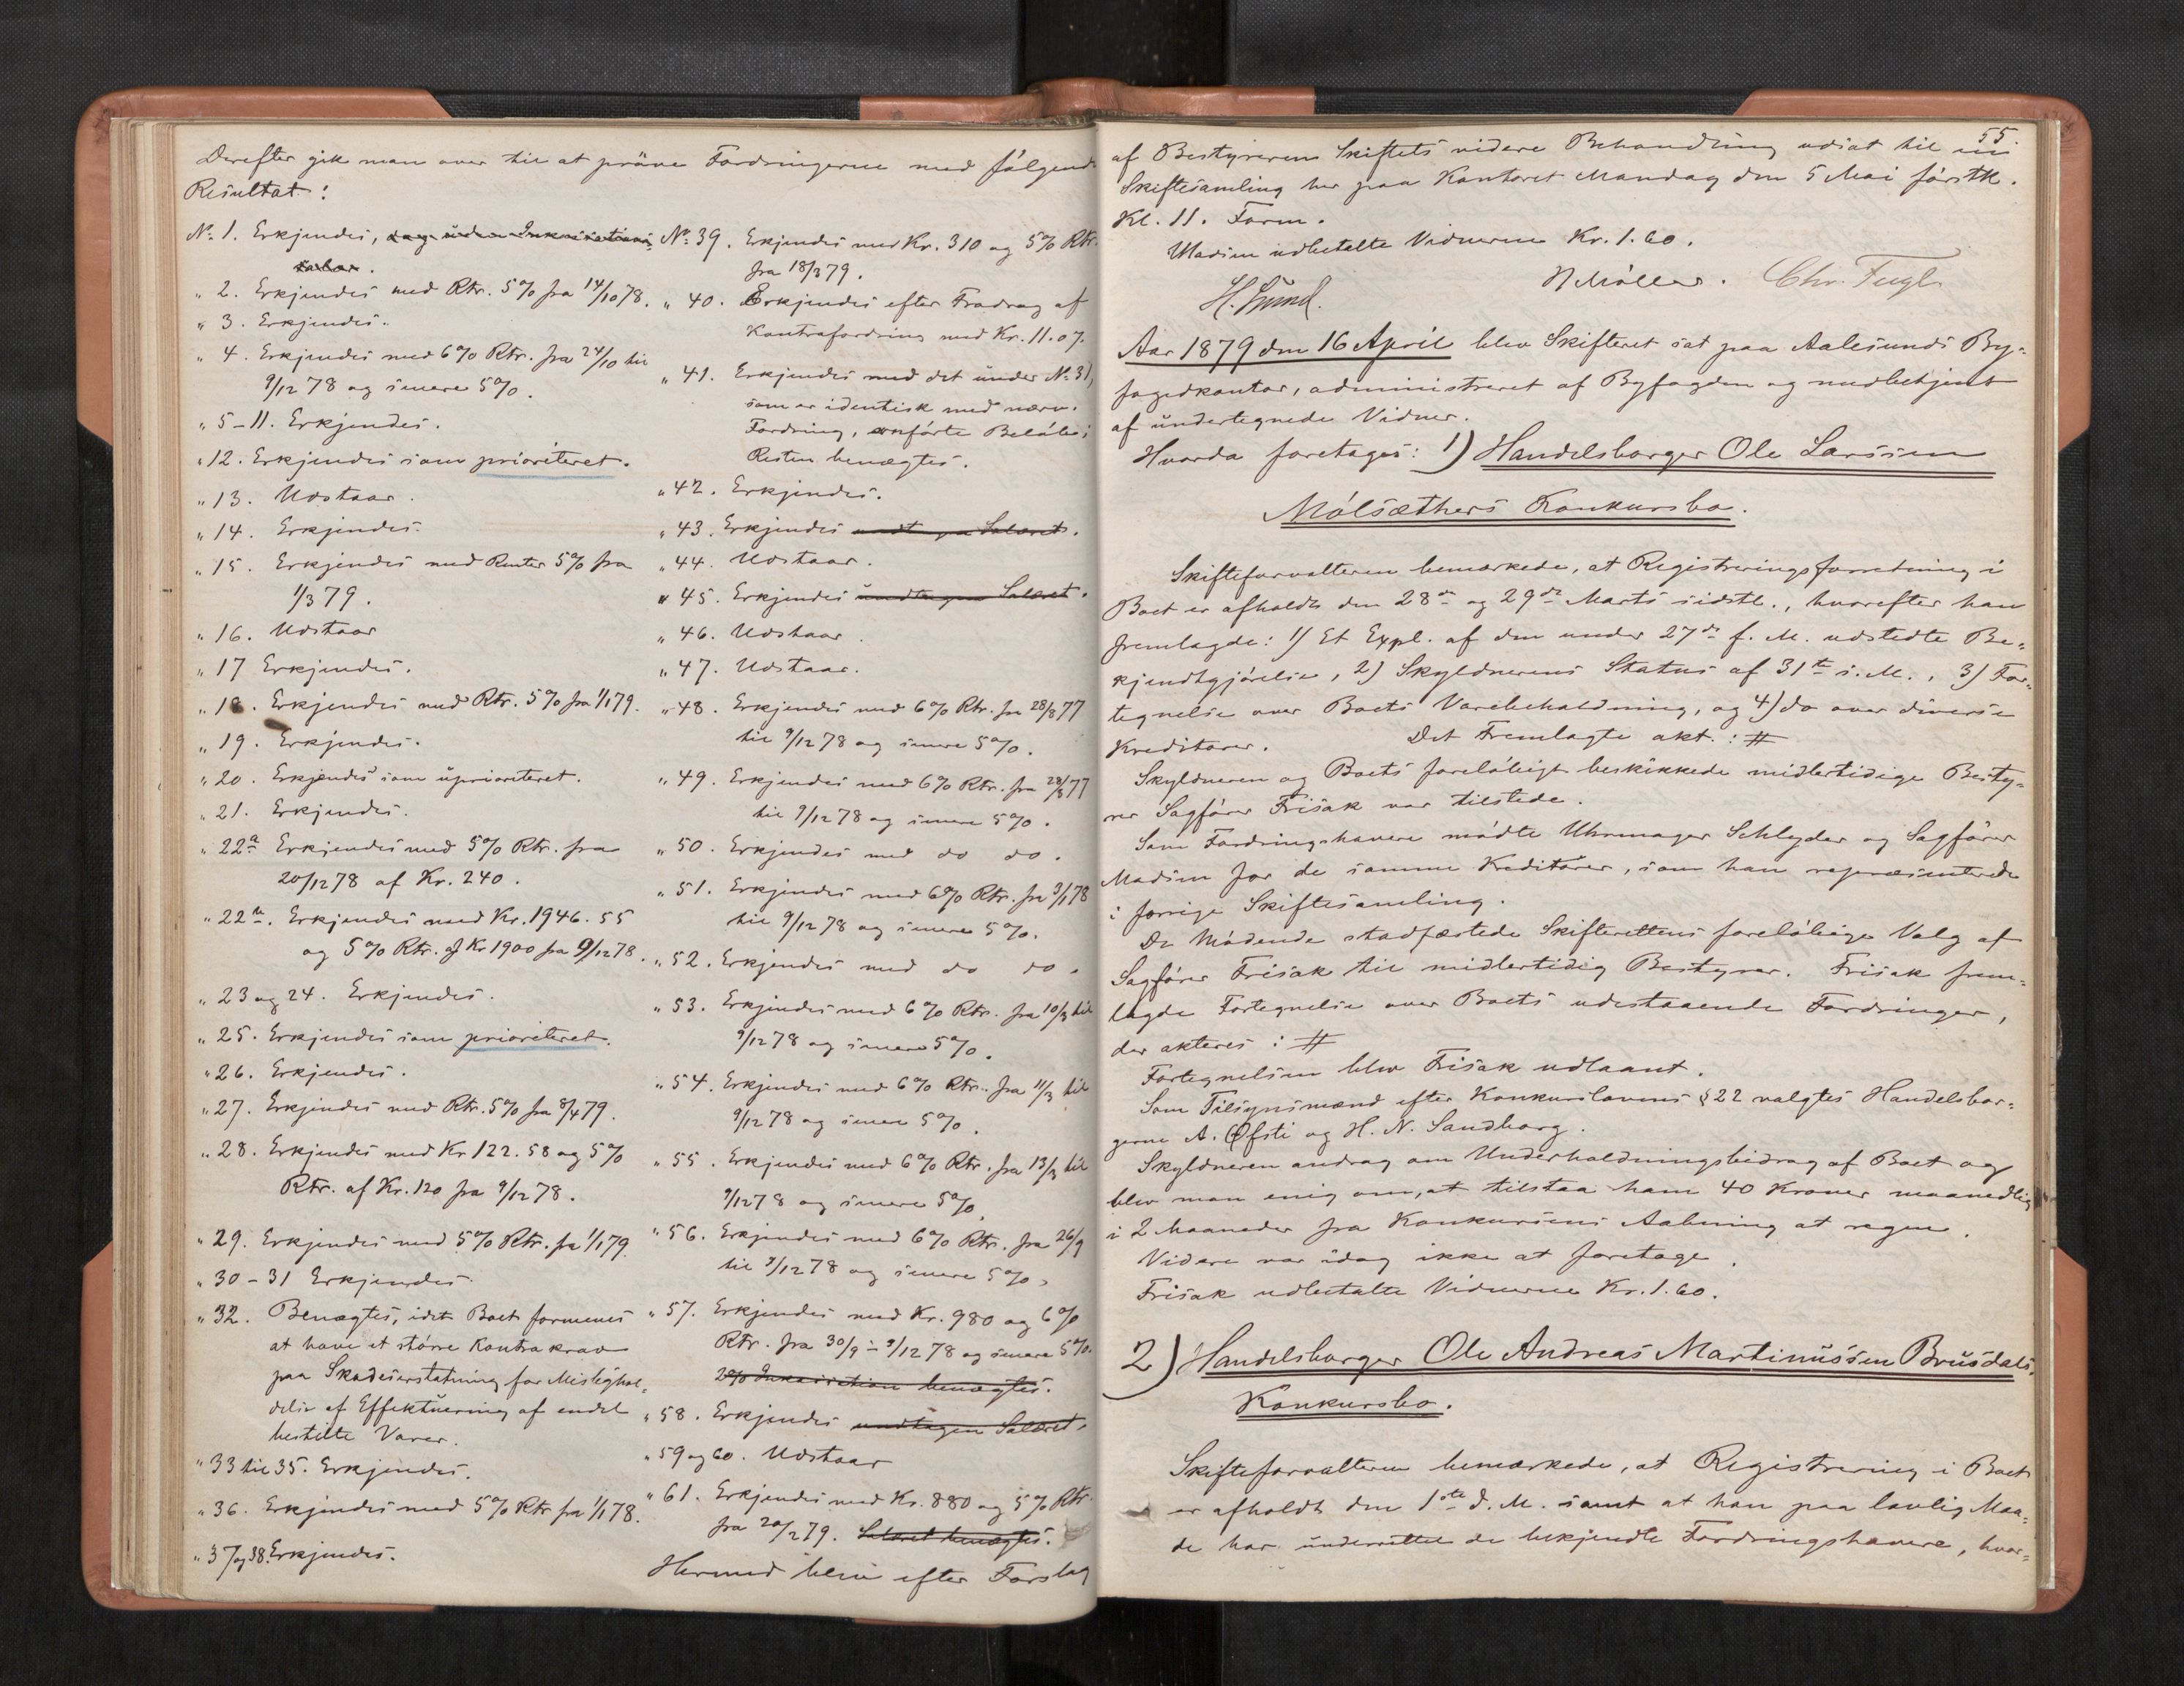 Derefter gik man over til at prøve Fordringerne med følgende
Resultat:
No 1. Erkjendes, dog uden Inkassations
salær.
" 2. Erkjendes med Rtr. 5% fra 14/10 78.
" 3. Erkjendes.
" 4. Erkjendes med 6% Rtr. fra 24/10 til
9/12 78 og senere 5%.
" 5-11. Erkjendes.
" 12. Erkjendes som prioriteret.
" 13. Udstaar.
" 14. Erkjendes.
" 15. Erkjendes med Renter 5% fra
1/3 79.
" 16. Udstaar
" 17 Erkjendes.
" 18. Erkjendes med Rtr. 5% fra 1/1 79.
" 19. Erkjendes.
" 20. Erkjendes som uprioriteret.
" 21. Erkjendes.
" 22a Erkjendes med 5% Rtr. fra
20/12 78 af Kr. 240.
" 22b. Erkjendes med Kr. 1946.55
og 5% Rtr. af Kr 1900 fra 9/12 78.
" 23 og 24. Erkjendes.
" 25. Erkjendes som prioriteret.
" 26. Erkjendes.
" 27. Erkjendes med Rtr. 5% fra 8/4 79.
" 28. Erkjendes med Kr 122.58 og 5%
Rtr. af Kr. 120 fra 9/12 78.
" 29. Erkjendes med 5% Rtr. fra 1/1 79.
" 30-31 Erkjendes
" 32. Benægtes, idet Boet formenes
at have et større Kontrakrav
paa Skadeserstatning for Misligehol-
delse af Effektuering af endel
bestilte Varer.
" 33 til 35. Erkjendes.
" 36. Erkjendes med 5% Rtr fra 1/1 78.
" 37 og 38. Erkjendes.
No 39. Erkjendes med Kr. 310 og 5% Rtr.
fra 18/3 79.
" 40. Erkjendes efter Fradrag af
Kontrafordring med Kr. 11.07.
" 41. Erkjendes med det under No 31,
som er identisk med nærv.
Fordring, anførte Beløb;
Resten benægtes.
" 42. Erkjendes.
" 43. Erkjendes undtagen Salæret.
" 44. Udstaar.
" 45. Erkjendes undtagen Salæret.
" 46. Udstaar.
" 47. Udstaar.
" 48. Erkjendes med 6% Rtr. fra 28/8 77
til 9/12 78 og senere 5%.
" 49. Erkjendes med 6% Rtr. fra 28/8 77
til 9/12 78 og senere 5%.
" 50. Erkjendes med do do.
" 51. Erkjendes med 6% Rtr. fra 3/1 78
til 9/12 78 og senere 5%.
" 52. Erkjendes med do do.
" 53. Erkjendes med 6% Rtr. fra 10/3 til
9/12 78 og senere 5%.
" 54. Erkjendes med 6% Rtr. fra 11/3 til
9/12 78 og senere 5%.
" 55. Erkjendes med 6% Rtr. fra 13/3 til
9/12 78 og senere 5%.
" 56. Erkjendes med 6% Rtr. fra 26/9
til 9/12 78 og senere 5%.
" 57. Erkjendes med Kr. 980 og 6%
Rtr. fra 30/9 - 9/12 78 og senere 5%.
2% Inkassation benægtes.
" 58. Erkjendes undtagen Salæret.
" 59 og 60. Udstaar
" 61. Erkjendes med Kr. 880 og 5% Rtr.
fra 20/2 79. Salæret benægtes.
Hermed blev efter Forslag
55.
af Bestyreren Skiftets videre Behandling udsat til en
Skiftesamling her paa Kontoret Mandag den 5 Mai førstk.
Kl. 11. Form.
Madsen udbetalte Vidnerne Kr. 1.60.
H. Lund. N Møller. Chr. Fugl.
Aar 1879 den 16 April blev Skifteret sat paa Aalesunds By-
fogedkontor, administreret af Byfogden og medbetjent
af undertegnede Vidner.
Hvorda foretoges: 1) Handelsborger Ole Larssen
Mólsæthers Konkursbo.
Skifteforvalteren bemærkede, at Registreringsforretning i
Boet er afholdt den 28de og 29de Marts sidstl., hvorefter han
fremlagde: 1) Et Expl. af den under 27de f. M. udstedte Be-
kjendtgjørelse, 2) Skyldnerens Status af 31te s. M., 3) For-
tegnelse over Boets Varebeholdning, og 4) do over diverse
Kreditorer. Det Fremlagte akt.: #
Skyldneren og Boets foreløbigt beskikkede midlertidige Besty-
rer Sagfører Frisak var tilstede.
Som Fordringshavere mødte Uhrmager Schlyder og Sagfører
Madsen for de samme Kreditorer, som han repræsenterede
i forrige Skiftesamling.
De Mødende stadfæstede Skifterettens foreløbige Valg af
Sagfører Frisak til midlertidig Bestyrer. Frisak frem-
lagde Fortegnelse over Boets udestaaende Fordringer,
der akteres: #
Fortegnelsen blev Frisak udlaant.
Som Tilsynsmænd efter Konkurslovens § 22 valgtes Handelsbor-
gerne A. Øfsti og H. N. Sandborg.
Skyldneren androg om Underholdningsbidrag af Boet og
blev man enig om, at tilstaa ham 40 Kroner maanedlig
i 2 Maaneder fra Konkursens Aabning at regne.
Videre var idag ikke at foretage.
Frisak udbetalte Vidnerne Kr. 1.60.
2) Handelsborger Ole Andreas Martinussen Brusdals
Konkursbo.
Skifteforvalteren bemærkede, at Registrering i Boet
er afholdt den 1ste d. M. samt at han paa lovlig Maa-
de har underrettet de bekjendte Fordringshavere, hvor-